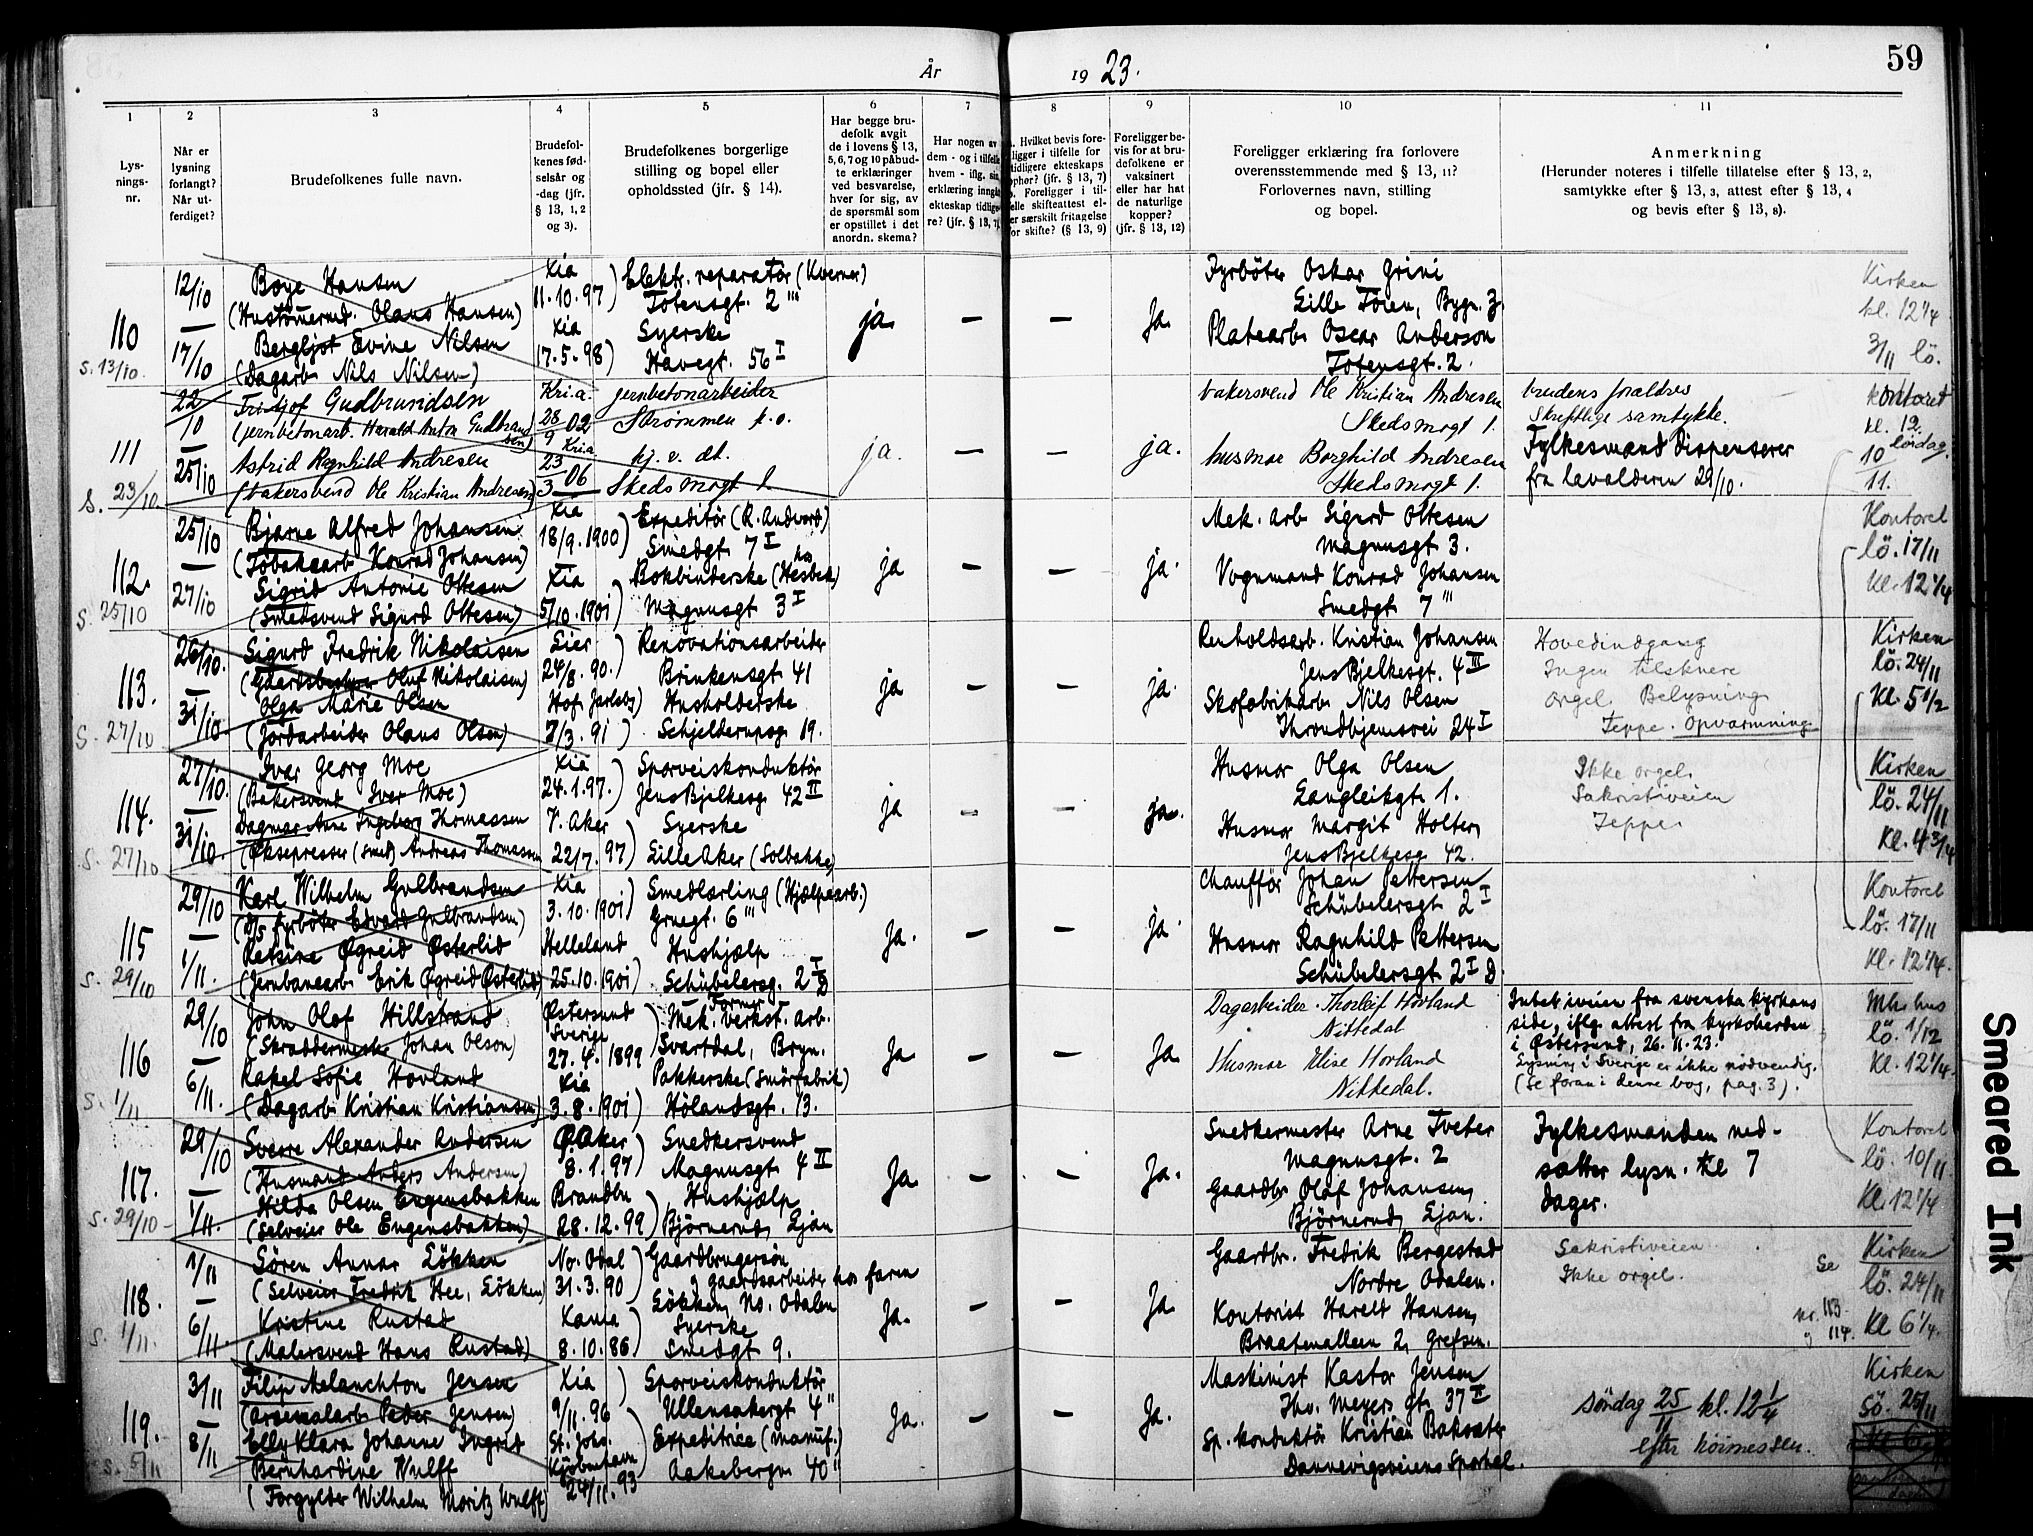 År 1923.
59
1
2
3
4
5
6
7
8
9
10
11
Lys-
nings-
nr.
Når er
lysning
forlangt?
Når ut-
ferdiget?
Brudefolkenes fulle navn.
Brudefol-
kenes fød-
selsår og
-dag (jfr.
§ 13, 1, 2
og 3).
Brudefolkenes borgerlige
stilling og bopel eller
opholdssted (jfr. § 14).
Har begge bru-
defolk avgit
de i lovens § 13,
5, 6, 7 og 10 påbud-
te erklæringer
ved besvarelse,
hver for sig, av
de spørsmål som
er opstillet i det
anordn. skema?
Har nogen av
dem - og i tilfelle
hvem - iflg. sin
erklæring inngått
ekteskap tidlige-
re? (jfr. § 13, 7)
Hvilket bevis fore-
ligger i tilfelle for
tidligere ekteskaps
ophør? (jfr. § 13, 7)
Foreligger i til-
felle skifteattest el-
ler særskilt fritagelse
for skifte? (§ 13, 9)
Foreligger be-
vis for at bru-
defolkene er
vaksinert
eller har hat
de naturlige
kopper?
(jfr. § 13, 12)
Foreligger erklæring fra forlovere
overensstemmende med § 13, 11?
Forlovernes navn, stilling
og bopel.
Anmerkning
(Herunder noteres i tilfelle tillatelse efter § 13, 2,
samtykke efter § 13, 3, attest efter § 13, 4
og bevis efter § 13, 8).
110
S. 13/10.
12/10
—
17/10
Boye Hansen
(Hustømermd. Olaus Hansen)
Bergljot Evine Nilsen
(Dagarb. Nils Nilsen)
Xia
11.10.97)
Xia
17.5.98)
Elektr. reparatör (Kværner)
Totensgt. 2 III
Syerske
Havegt. 56 I
ja.
—
—
Ja.
Fyrböter Oskar Grini
Lille Töien, Bygn. 3.
Platearb. Oscar Anderson
Totensgt. 2.
Kirken
kl. 12 1/4
3/11 lö.
111
S. 23/10.
22/10
—
25/10
Fritjof Gudbrandsen
(jernbetonarb. Harald Anton Gudbrandsen)
Astrid Ragnhild Andresen
(bakersvend Ole Kristian Andresen)
Kri.a.
28/9 02
Kri.a
23/3 06
jernbetonarbeider
Strømmen p.o.
hj. v. dt.
Skedsmogt 1.
ja.
—
—
ja.
bakersvend Ole Kristian Andresen
Skedsmogt 1.
husmor Borghild Andresen
Skedsmogt 1.
brudens foraldres
skriftlige samtykke.
Fylkesmand dispenserer
fra lavalderen 29/10.
kontoret
kl. 12
lørdag
10
11.
112.
S. 25/10
25/10
—
27/10
Bjarne Alfred Johansen
(Tobakaarb. Konrad Johansen)
Sigrid Antonie Ottesen
(Smedsvend Sigurd Ottesen)
Xia
18/9.1900)
Xia
5/10.1901)
Expeditör (R. Andvord)
Smedgt 7 I
Bokbinderske (hos Hesbek)
Magnusgt 3 I
ja
—
—
ja.
Mek. arb Sigurd Ottesen
Magnusgt 3.
Vognmand Konrad Johansen
Smedgt 7 III
Kontoret
lö. 17/11
Kl. 12 1/4
113.
S. 27/10
26/10.
—
31/10.
Sigurd Fredrik Nikolaisen
(Gaardsbestyrer Oluf Nikolaisen)
Olga Marie Olsen
(Jordarbeider Olaus Olsen)
Lier
24/8.90.)
Hof Jarlsbg)
7/3.91)
Renovationsarbeider
Brinkensgt 41
Husholderske
Schjelderupsg 19.
ja
—
—
ja.
Renholdsarb. Kristian Johansen
Jens Bjelkesgt. 4 III
Skofabrikarb. Nils Olsen
Throndhjemsvei 24 I
Hovedindgang
Ingen tilskuere
orgel. Belysning
Teppe. Opvarmning
Kirken
lö. 24/11
Kl. 5 1/2
114.
S. 27/10
27/10.
—
31/10.
Ivar Georg Moe
(Bakersvend Iver Moe)
Dagmar Anne Ingeborg Thomassen
(Øksepresser (smed) Andreas Thomassen
Xia
24.1.97.)
V. Aker
22/7.97)
Sporveiskonduktör
Jens Bjelkesg 42 II
Syerske
Lille Aker (Solbakke)
ja
—
—
ja.
Husmor Olga Olsen
Langleikgt 1.
Husmor Margit Holter,
Jens Bjelkesg 42.
Ikke orgel.
Sakristiveien
Teppe
Kirken
lö. 24/11
Kl. 4 3/4
115
S. 29/10
29/10
—
1/11.
Karl Wilhelm Gulbrandsen
(D/s fyrböter Edvard Gulbrandsen)
Øgreid Østerlid
(Jernbanearb Erik Øgreid Østerlid)
Xia
3.10.1901)
Helleland
25.10.1901)
Smedlærling (Hjælpearb.)
Gruegt. 6 III
Hushjælp
Schübelersg. 2 I D
Ja.
—
—
ja.
Chaufför Johan Pettersen
Schübelersgt 2 I
Husmor Ragnhild Pettersen
Schübelersgt 2 I D
Kontoret
lö. 17/11
Kl. 12 1/4.
116
S. 1/11
29/10
—
6/11.
John Olof Hillstrand
(Skræddermester Johan Olson)
Rakel Sofie Hovland
(Dagarb. Kristian Kristiansen)
Østersund
Sverige
27.4.1899
Xia
3.8.1901)
Former
Mek. verkst. arb.
Svartdal, Bryn.
Pakkerske (Smörfabrik)
Hölandsgt. 13.
Ja
—
—
Ja.
Dagarbeider Thorleif Hovland
Nittedal
Husmor Elise Hovland
Nittedal.
Intet iveien fra svenska kyrkans
side, iflg. attest fra kyrkoherden
i Østersund, 26.11.23.
Lysning i Sverige er ikke nödvendig.
(Se foran i denne bog, pag. 3).
Mh. hus
lö. 1/12
Kl. 12 1/4.
117.
S. 29/10
29/10
—
1/11.
Sverre Alexander Andersen
(Husmand Anders Andersen)
Hilda Olsen Engensbakken
(Selveier Ole Engensbakken)
Ø. Aker
8.1.97)
Brandbu
28.12.99)
Snedkersvend
Magnusgt 4 II
Hushjælp
Björnerud, Ljan
Ja.
—
—
Ja.
Snedkermester Arne Tveter
Magnusgt. 2
Gaardbr. Olaf Johansen,
Björnerud, Ljan.
Fylkesmanden ned-
sætter lysn. til 7
dager.
Kontoret
lö. 10/11
Kl. 12 1/4
118.
S. 1/11.
1/11
—
6/11
Sören Annar Lökken
(Selveier Fredrik Hee, Lökken)
Kristine Rustad
(Malersvend Hans Rustad)
No. Odal
31.3.90)
Xania
8.10.86)
Gaardbrugersön
og gaardsarbeider hos faren
Lökken, No. Odalen
Syerske
Smedgt 9.
Ja.
—
—
Ja.
Gaardbr. Fredrik Bergestad
Nordre Odalen.
Kontorist Harald Hansen,
Braatenalleen 2, Grefsen.
Sakristiveien
Ikke orgel.
Se
nr. 113
og 114.
Kirken
lö. 24/11
Kl 6 1/4.
119.
S. 5/11
3/11
—
8/11
Filip Melanchton Jensen
(Arsenalarb. Peder Jensen)
Elly Klara Johanne Ingrid
Bernhardine Wulff
(Forgylder Wilhelm Moritz Wulff)
Xia
9/11.96
St. Johs.
Kjöbenhavn
24/11.93
Sporveiskonduktör
Ullensakergt 4 II
Expeditrice (manuf.)
Aakebergv. 40 II
Ja.
—
—
Ja.
Maskinist Kastor Jensen
Thv. Meyers gt. 37 II
Sp. konduktör Kristian Baksæter
Dannevigsveiens Sporhal.
Söndag 25/11 kl. 12 1/4
efter höimessen.
Kirken
Sö. 25/11
Smeared Ink